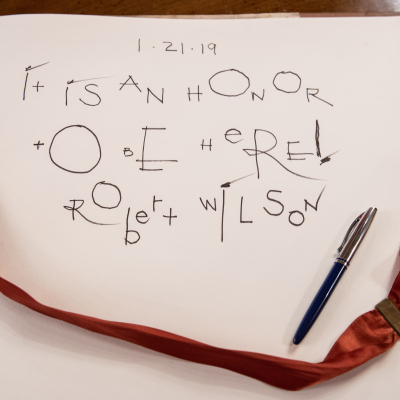 1.21.19
It is AN HONOR
to BE HeRE!
RObert WILSON